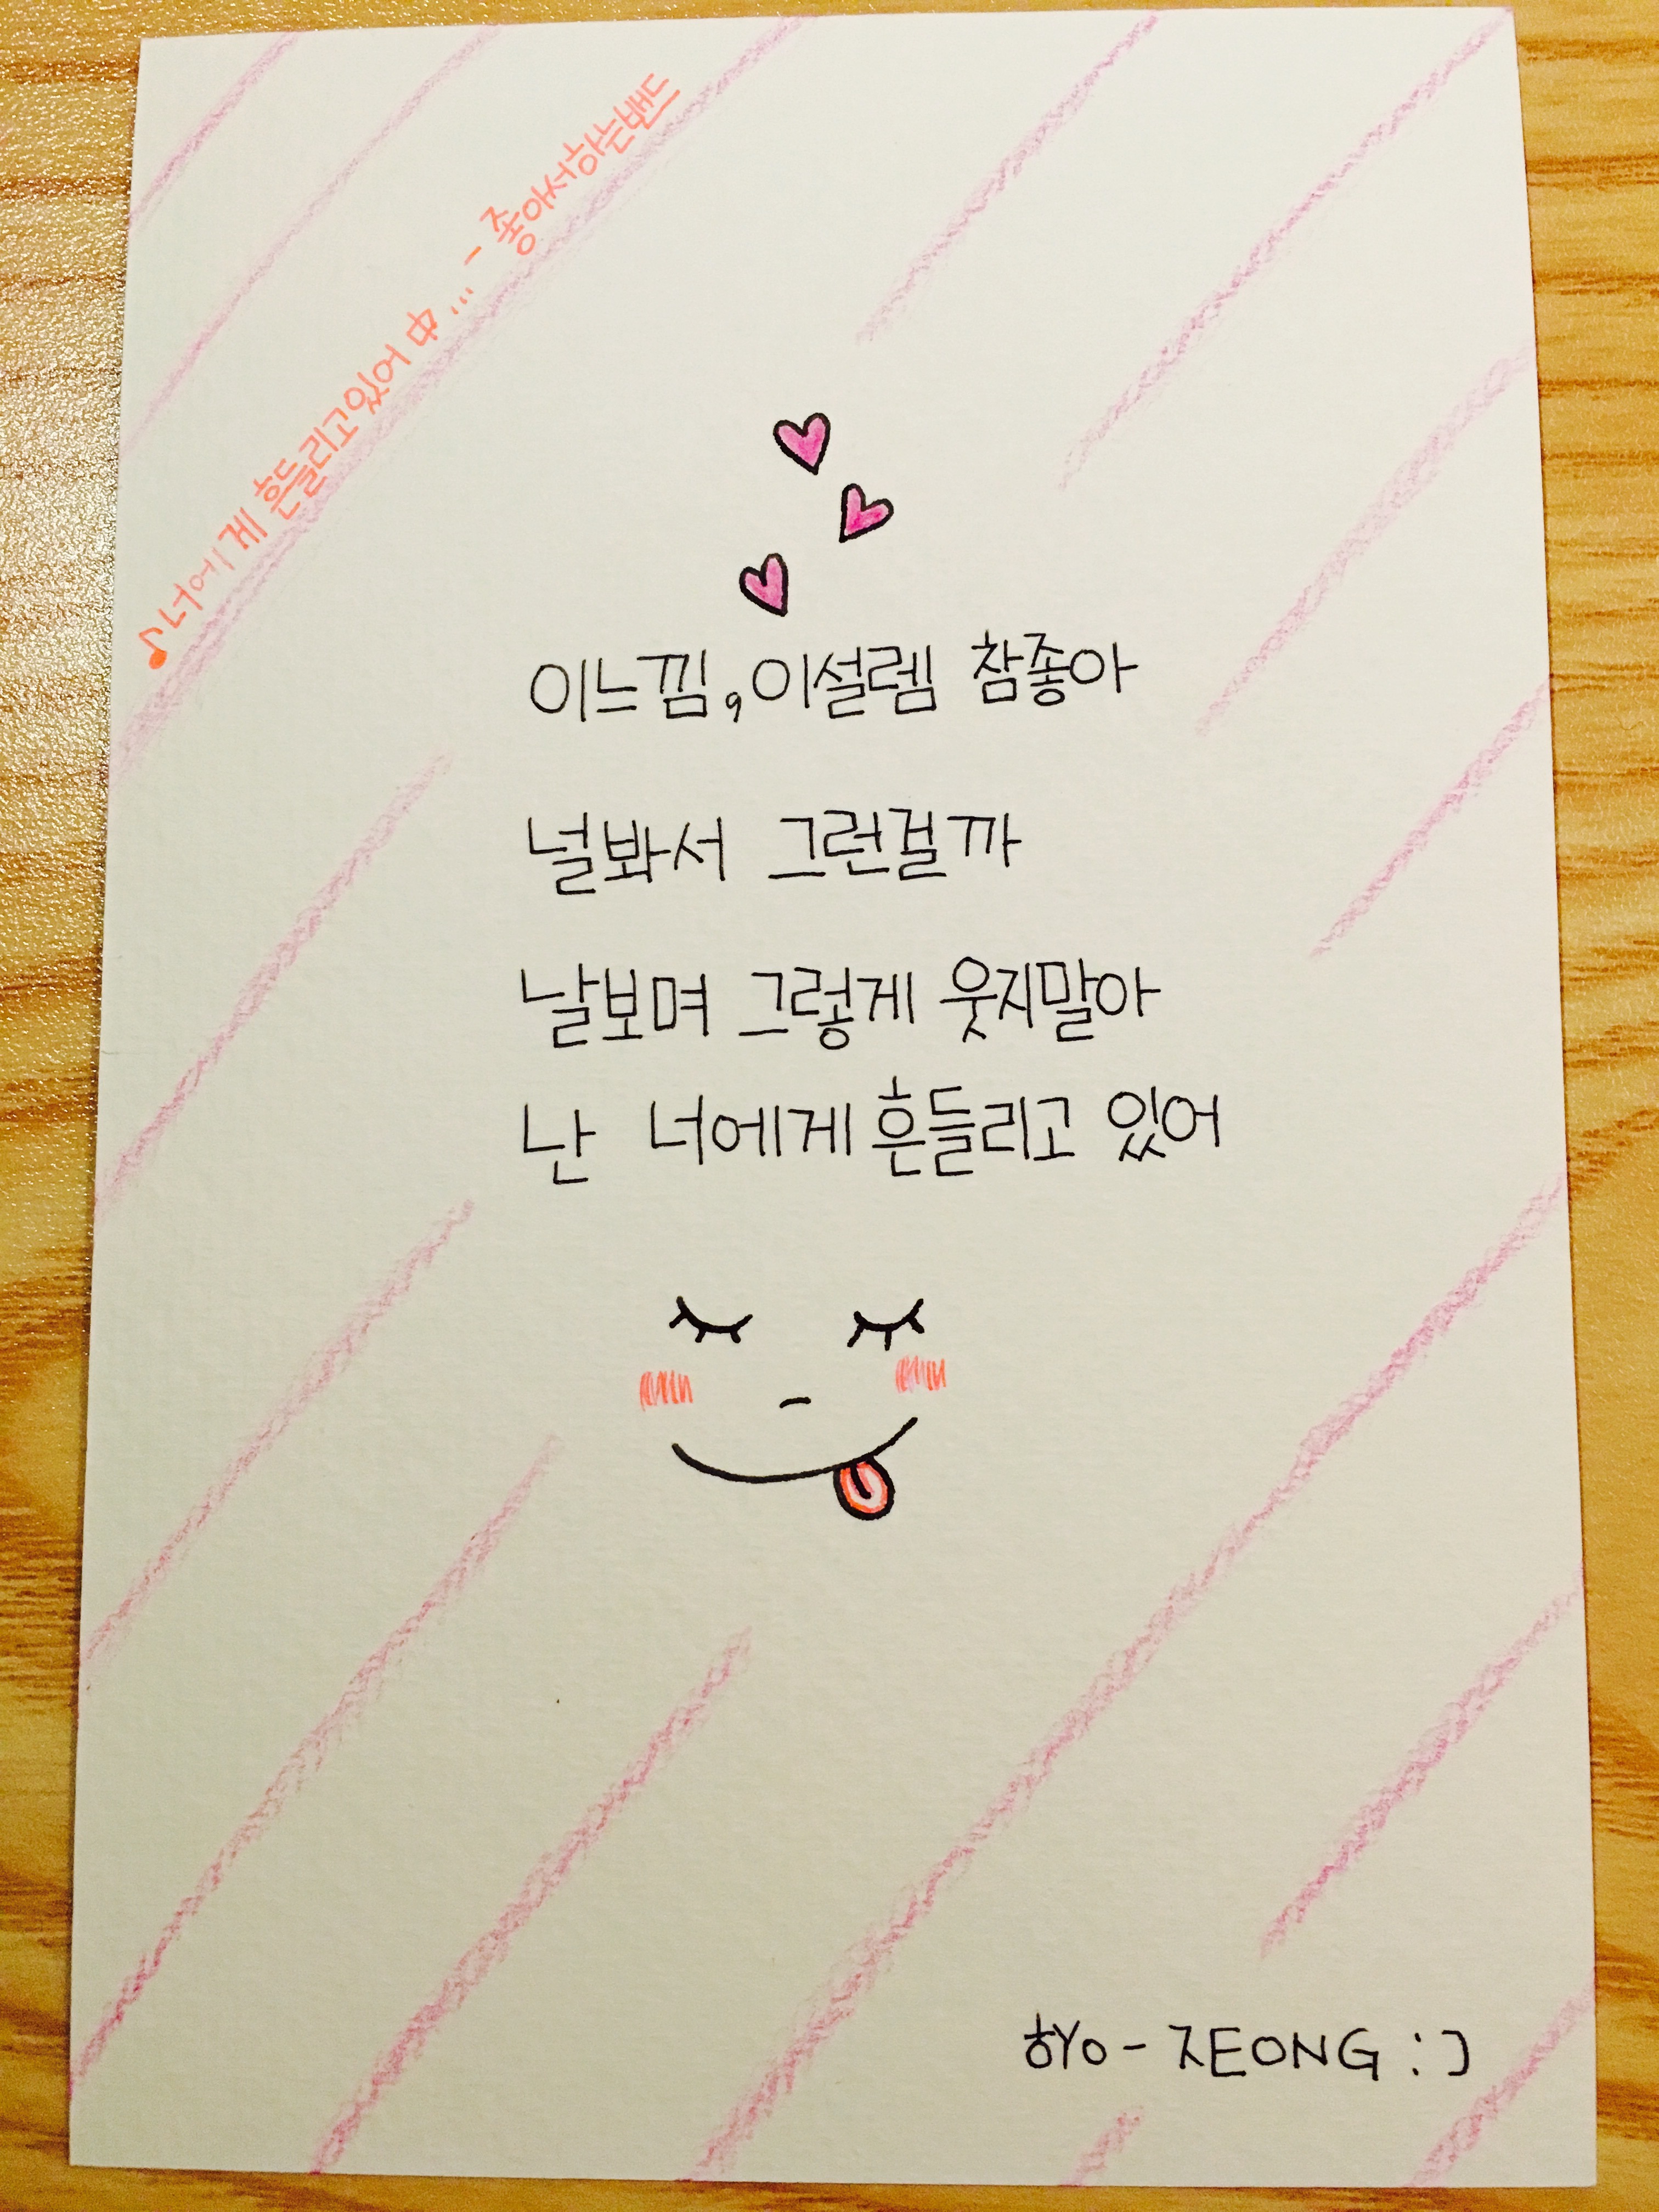 ♪너에게 흔들리고있어 中... - 좋아서하는밴드
이느낌,이설렘 참좋아
널봐서 그런걸까
날보며 그렇게 웃지말아
난 너에게 흔들리고 있어
ㅎYO-ㅈEONG :)